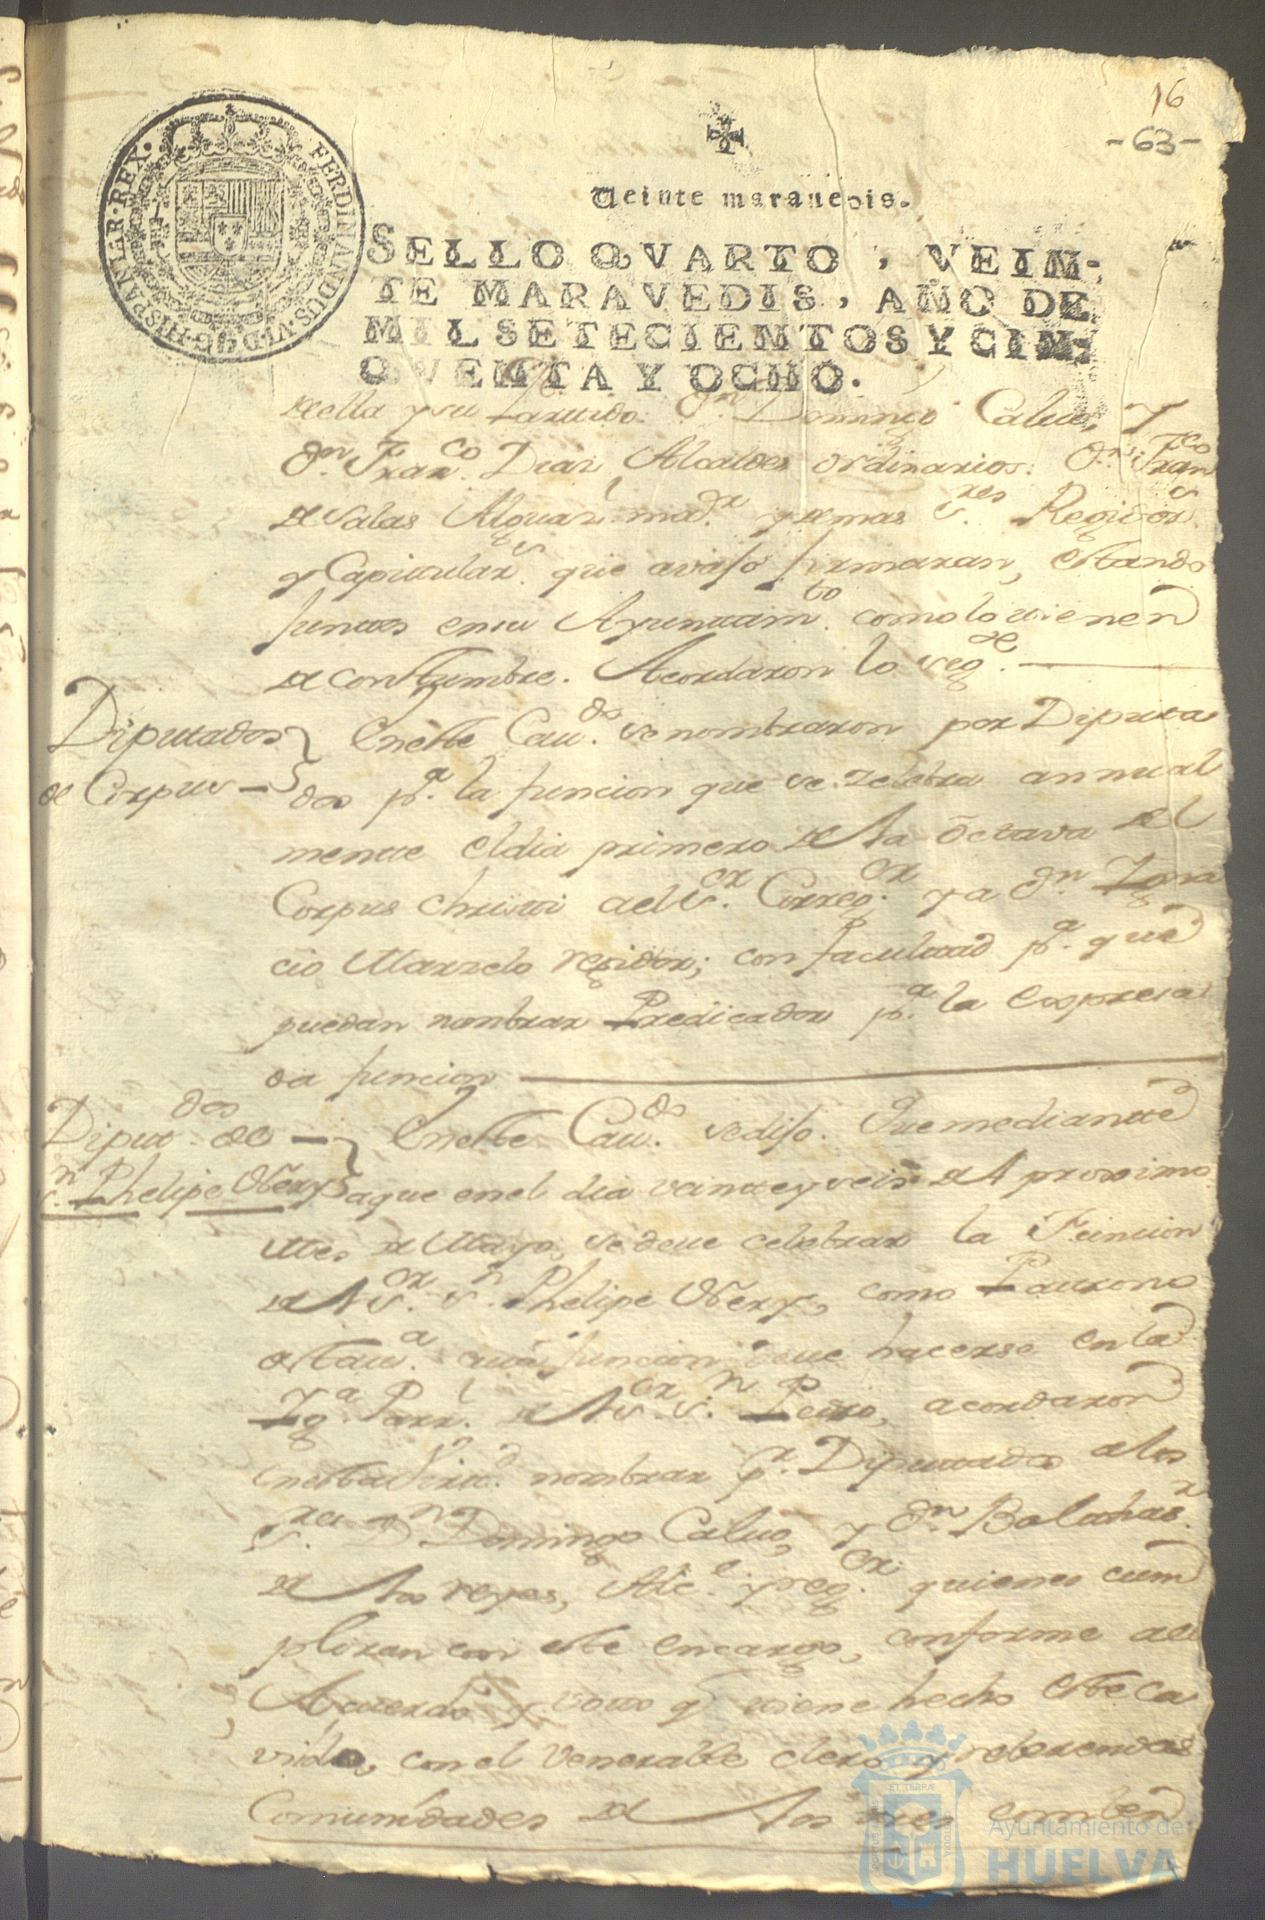 16
-63-
FERDINANDUS·VI·D·G·HISPANIAR·REX·
Veinte marauedis.
SELLO QVARTO, VEIN-
TE MARAVEDIS, AÑO DE
MIL SETECIENTOS Y CIN-
QVENTA Y OCHO.
de ella y su Partido: Dn. Domingo Calvo, y
Dn. Franco. Diaz, Alcaldes ordinarios: Dn. Franco.
de Salas Alguazl. mayr. y demas Sres. Regidors.
y Capitulars. que avajo firmaran, estando
Juntos en su Ayuntamto. como lo tienen
de Constumbre. Acordaron lo sige.
Diputados
de Corpus
En este Cavdo. se nombraron por Diputa
dos pa. la funcion que se zelebra annual
mente el dia primero de la Octava del
Corpus Christi a el Sr. Corregor. y a Dn. Igna
cio Marzelo regidor; con facultad pa. que
puedan nombrar Predicador pa. la Expresa
da funcion
Diputdos. de
Sn. Phelipe Nery
En este Cavdo. se dijo. Que mediante
a que en el dia veinte y seis del proximo
Mes de Mayo, se deve celebrar la Funcion
del Sor. Sn. Phelipe Nery, como Patrono
esta va. cuia funcion deve hacerse en la
Yga. Parrl. del Sor. Sn. Pedro, acordaron
en esta Virtd. nombrar pr. Diputados a los
Sres. Dn. Domingo Calvo, y Dn. Balthasr.
de los reyes, Alce. y regor. quienes cum
pliran con este encargo, conforme a el
Acuerdo y voto q tiene hecho este ca
vildo, con el Venerable clero y reberendas
Comunidades de los tres comben
ET TERRÆ
Ayuntamiento de
HUELVA